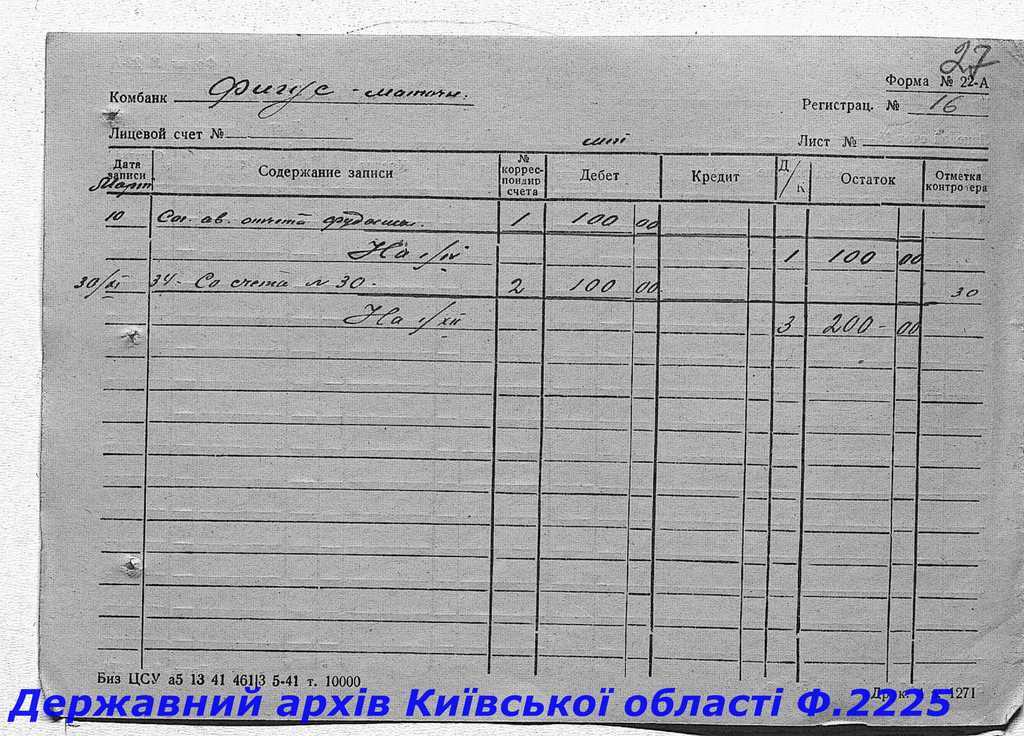 27
Форма № 22-А
Комбанк Фигус - маточн.
Регистрац. № 16
Лицевой счет №
шт
Лист №
Дата записи
Содержание записи
№ корреспондир счета
Дебет
Кредит
Д/К
Остаток
Отметка контролера
Март
10 Сог. ав. отчета 1 100 00
На 1/IV 1 100 00
30/XI 34 - Со счета № 30 - 2 100 00 30
На 1/XII 3 200 - 00
Биз ЦСУ а5 13 41 461|3 5-41 т. 10000
Друк. 1 з. 1271
Державний архів Київської області Ф.2225